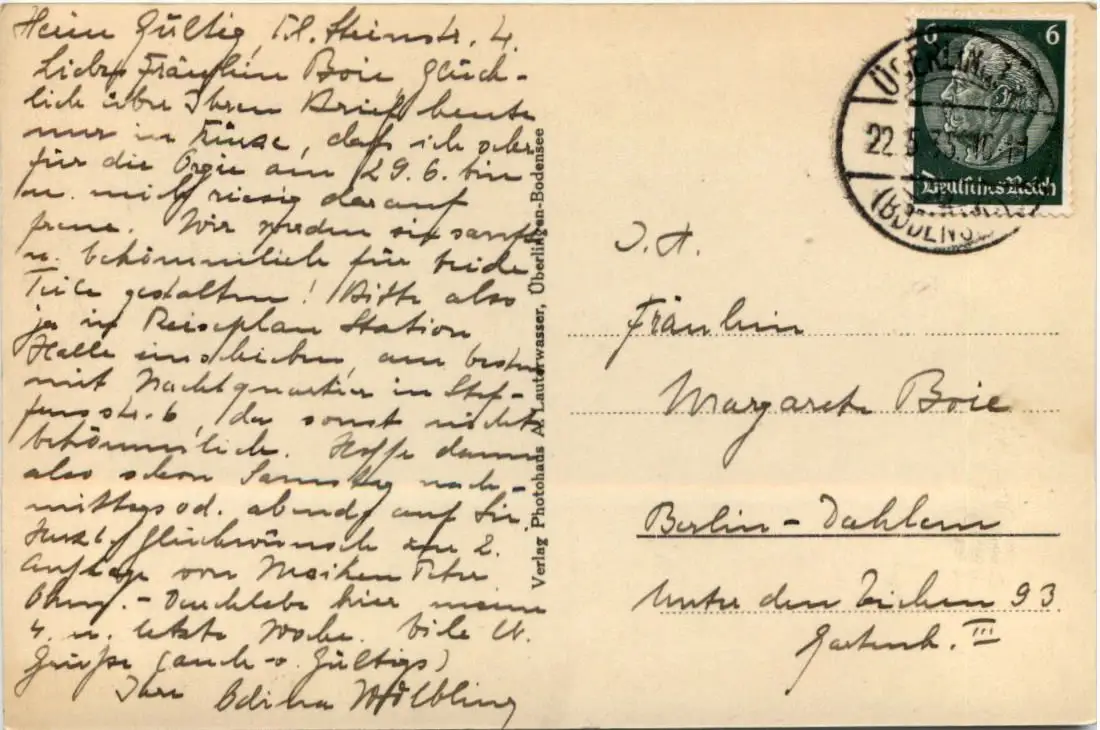 Heim Gültig, Tl. Steinstr. 4.
Liebes Fräulein Boie, glück-
lich über Ihren Brief, heute
nur in Kürze, daß ich sehr
für die Orgie am 29.6. bin
u. mich riesig darauf
freue. Wir werden sie sanft
u. bekömmlich für beide
Teile gestalten! Bitte also
ja in Reiseplan Station
Halle einschieben, am besten
mit Nachtquartier in Stef-
fensstr. 6, da sonst nicht
bekömmlich. Hoffe dann
also schon Samstag nach-
mittags od. abends auf Sie.
Herzl. Glückwünsch zur 2.
Auflage von Moiken Peter
Ohm. - Durchlebe hier meine
4. u. letzte Woche. Viele lb.
Grüße (auch v. Gültigs)
Ihre
Verlag Photohaus A. Lauterwasser, Überlingen-Bodensee
6 6
Deutsches Reich
ÜBERLINGEN
22.6.35. 10-11
(BODENSEE)
I. A.
Fräulein
Margarete Boie
Berlin-Dahlem
Unter den Eichen 93
Gartenh. III